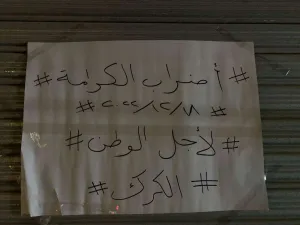 #أضراب الكرامة#
#٢٠٢٢/١٢/٧#
#لأجل الوطن#
#الكرك#